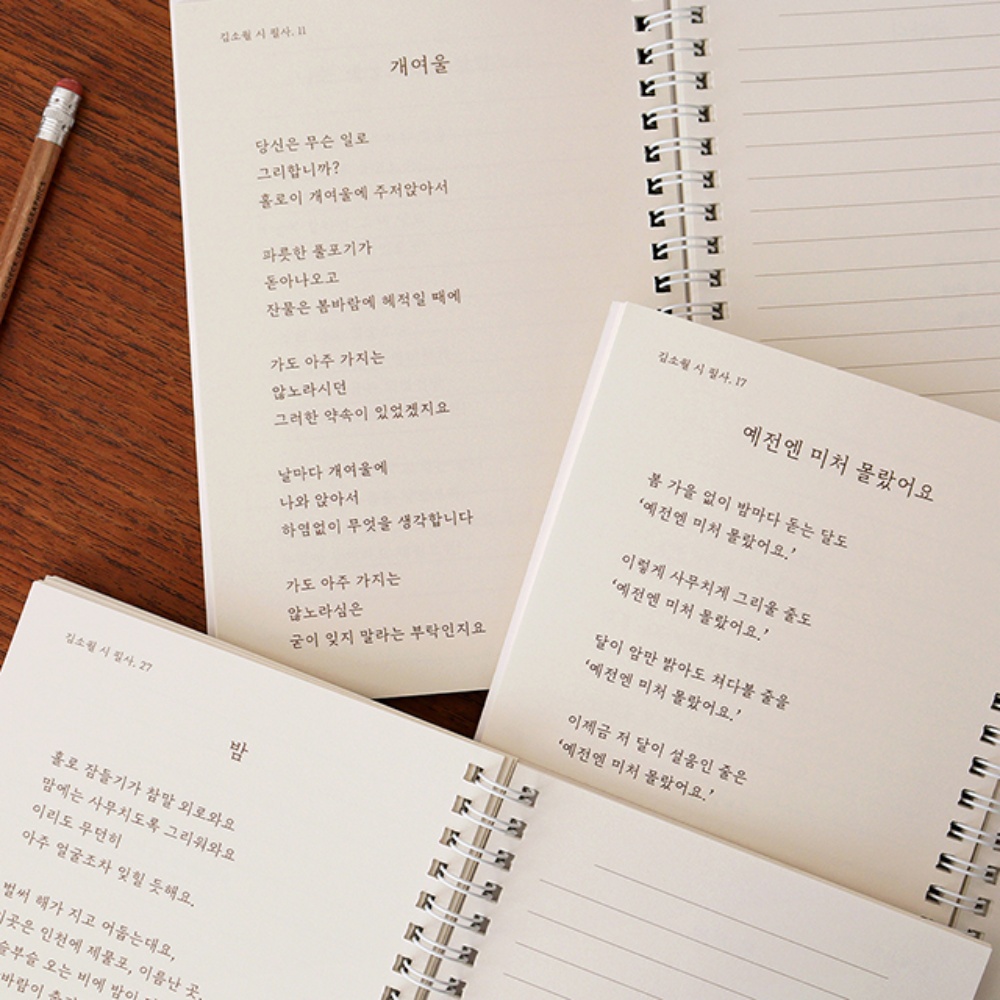 김소월 시 필사. 11
개여울
당신은 무슨 일로
그리합니까?
홀로이 개여울에 주저앉아서
파릇한 풀포기가
돋아나오고
잔물은 봄바람에 헤적일 때에
가도 아주 가지는
않노라시던
그러한 약속이 있었겠지요
날마다 개여울에
나와 앉아서
하염없이 무엇을 생각합니다
가도 아주 가지는
않노라심은
굳이 잊지 말라는 부탁인지요
김소월 시 필사. 17
예전엔 미처 몰랐어요
봄 가을 없이 밤마다 돋는 달도
‘예전엔 미처 몰랐어요.’
이렇게 사무치게 그리울 줄도
‘예전엔 미처 몰랐어요.’
달이 암만 밝아도 쳐다볼 줄을
‘예전엔 미처 몰랐어요.’
이제금 저 달이 설움인 줄은
‘예전엔 미처 몰랐어요.’
김소월 시 필사. 27
밤
홀로 잠들기가 참말 외로와요
맘에는 사무치도록 그리워와요
이리도 무던히
아주 얼굴조차 잊힐 듯해요.
벌써 해가 지고 어둡는대요,
이곳은 인천에 제물포, 이름난 곳,
오는 비에 밤이